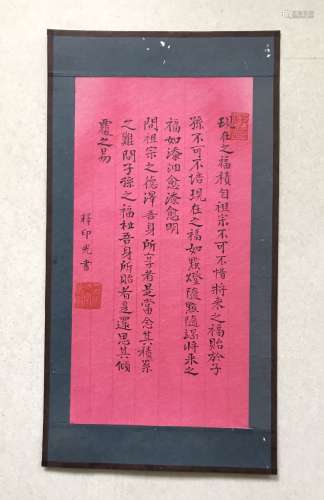 現在之福積自祖宗不可不惜將來之福貽於子
孫不可不培現在之福如點燈隨點隨竭將來之
福如添油愈添愈明
問祖宗之德澤吾身所享者是當念其積累
之難問子孫之福祉吾身所貽者是還思其傾
覆之易
釋印光書